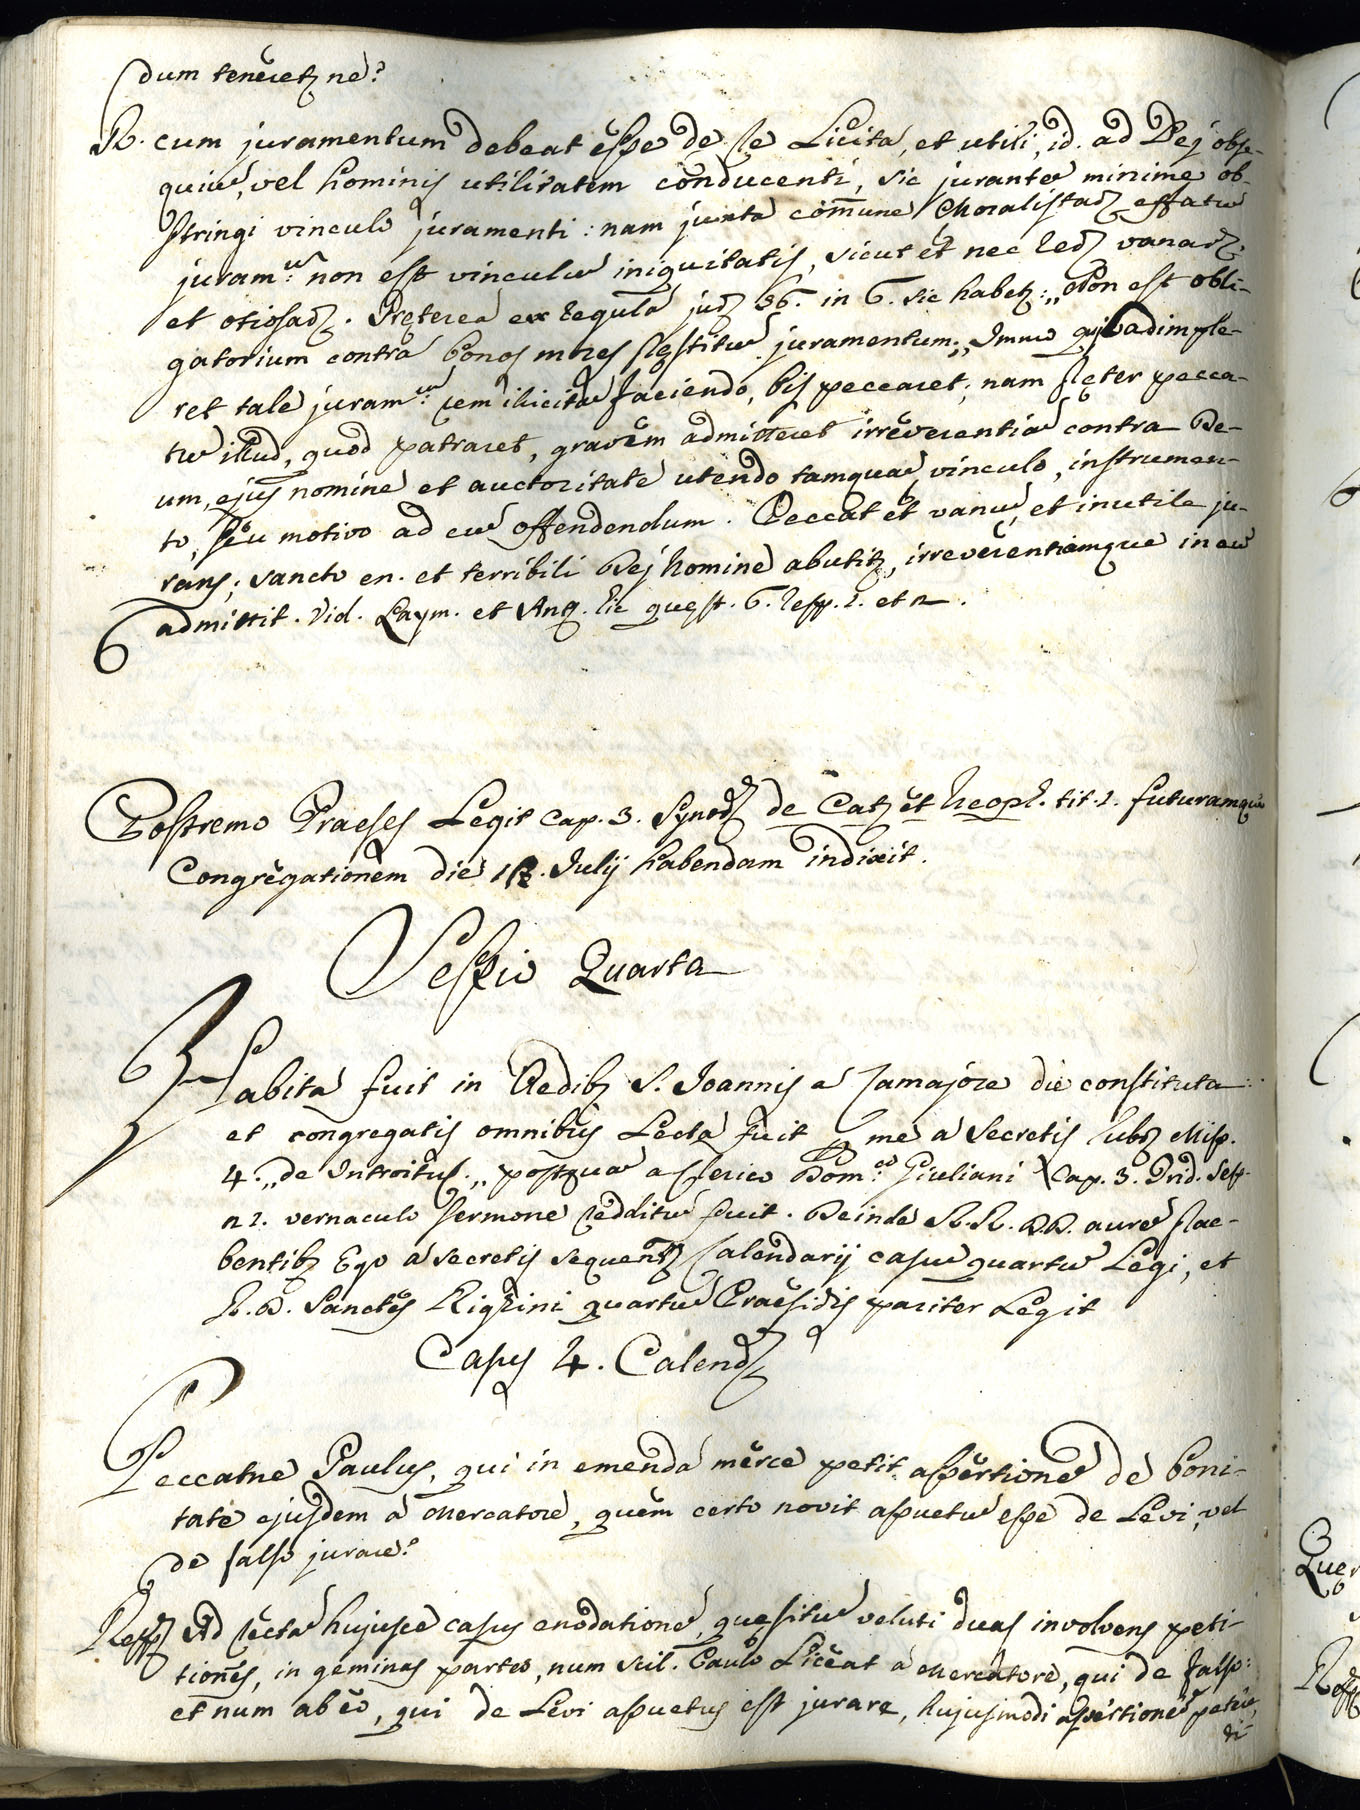 dum teneretꝫ ne?
R. cum juramentum debeat esse de re Licita, et utili, id. ad Dej obse-
quiũ, vel hominis utilitatem conducenti, sic jurante minime ob-
stringi vinculo juramenti: nam juxta com̃une Moralistaꝝ effatũ
juram.ᵘᵐ non est vinculũ iniquitatis, sicut et nec reꝝ vanaꝝ,
et otiosaꝝ. Pręterea ex regula jurꝫ 36. in 6. sic habetꝫ: „Non est obli-
gatorium contra bonos mores pręstitũ juramentum;„ Immo quis adimple-
ret tale juram.ᵘᵐ rem ilicitã faciendo, bis peccaret; nam pręter pecca-
tũ illud, quod patraret, gravem admitteret irreverentiã contra De-
um, ejus nomine et auctoritate utendo tamquã vinculo, instrumen-
to, seu motivo ad eũ offendendum. Peccat et vanũ, et inutile ju-
rans; sancto en. et terribili Dej Nomine abutitꝫ, irreverentiamque in eũ
admittit. Vid. Laym. et Ang. hic quęst. 6. resp. 1. et 2.
Postremo Praeses Legit Cap. 3. Synodꝫ de Catꝫ et Neoph. tit. 1. futuramque
Congregationem die 18. Julij habendam indixit.
Sessio Quarta
Habita fuit in Aedibꝫ S. Joannis a Camajore die constituta:
et congregatis omnibus Lecta fuit ꝑ me a Secretis rubꝫ Miss.
4. „de Introitu„ postquã a Clerico Dom.ᶜᵒ Giuliani Cap. 3. Trid. Sess.
21. vernaculo sermone redditũ fuit. Deinde R.R. D.D. aurẽ prae-
bentibꝫ Ego a Secretis sequentꝫ Calendarij casũ quartũ Legi, et
R. D. Sanctes Righini quartũ Praesidis pariter Legit
Casus 4. Calendꝫ
Peccatne Paulus, qui in emenda merce petit assertionẽ de boni-
tate ejusdem a Mercatore, quem certo novit assuetũ esse de Levi, vel
de falso jurare?
Respꝫ Ad rectã hujusce casus enodationẽ, quęsitũ veluti duas involvens peti-
tiones, in geminas partes, num scil. Paulo Liceat a Mercatore, qui de falso:
et num ab eo, qui de Levi assuetus est jurare, hujusmodi assertionẽ petere,
di-